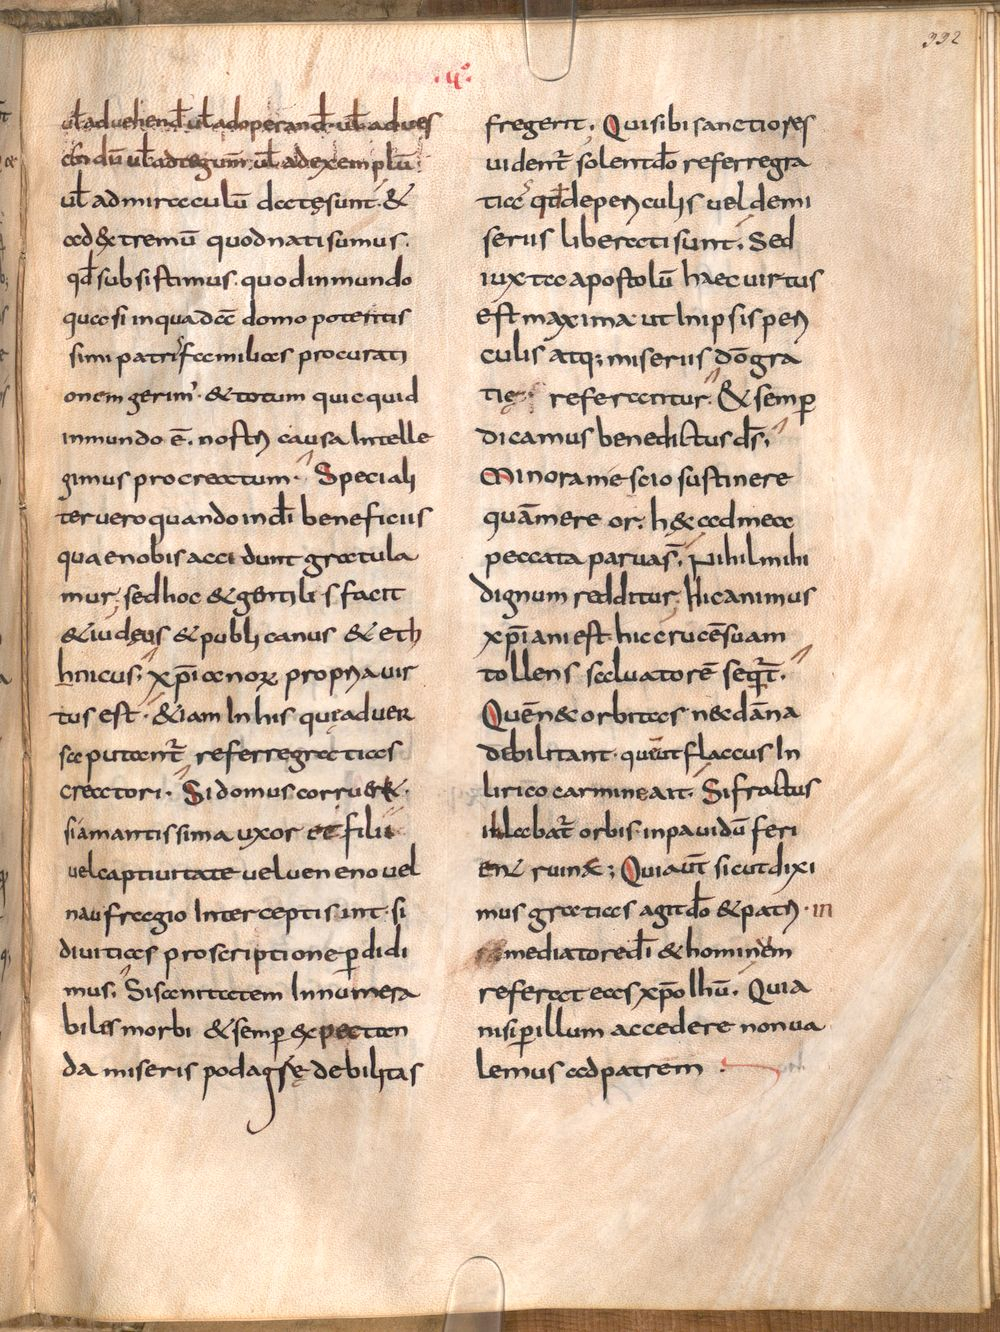 332
·u·
ul̄ aduehend̄ ul̄ adoperand̄· ul̄ adues
cen dū ul̄ adtegum̄· ul̄ adexemplū·
ul̄ admiraculū dataęsunt· &
ad &tremū quodnatisumus·
qd̄ subsistimus· quodinmundo
quasi inquadā domo potentis
simi patrisfamilias procurati
onem gerim᾽· & totum quicquid
inmundo ē. nostri causa Intelle
gimus procreatum· Speciali
teruero quando indi beneficiis
quaenobis accidunt gratula
mur; sedhoc & gentilis facit
& iudęus & publicanus & eth
hnicus; xp̄ianorum propria uir
tus est· & iam Inhis quiaduer
sa putant̄ referregratias
creatori· Si domus corruerit·
siamantissima uxor et filii
uelcaptiuitate ueluenenouel
naufragio Interceptisint· si
diuitias proscriptione p̄didi
mus; Sisanitatem Innumera
biles morbi & semp̄ expectan
da miseris podagrę debilitas
fregerit. Quisibi sanctiores
uident̄ solentdō referregra
tias qd̄ depericulis ueldemi
seriis liberatisunt. Sed
iuxta apostolū haecuirtus
est maxima ut Inipsis peri
culis atq; miseriis dōgra
tię referantur. & semp̄
dicamus benedictus ds̄;
Minora me scio sustinere
quāmereor. h& admea
peccata parua s̄. Nihilmihi
dignum redditur. Hicanimus
xp̄iani est· hic crucēsuam
tollens saluatorē seqt̄r.
Quēn& orbitas n& dāna
debilitant· qui ut flaccus In
lirico carmine ait. Sifractus
illabat̄ orbis· inpauidū feri
ent ruinæ; Quiaut̄ sicutdixi
mus gratias agitdō & patri· in
mediatoredī & hominem
referat eas xp̄olhū. Quia
nisip̄illum accedere nonua
lemus adpatrem ·